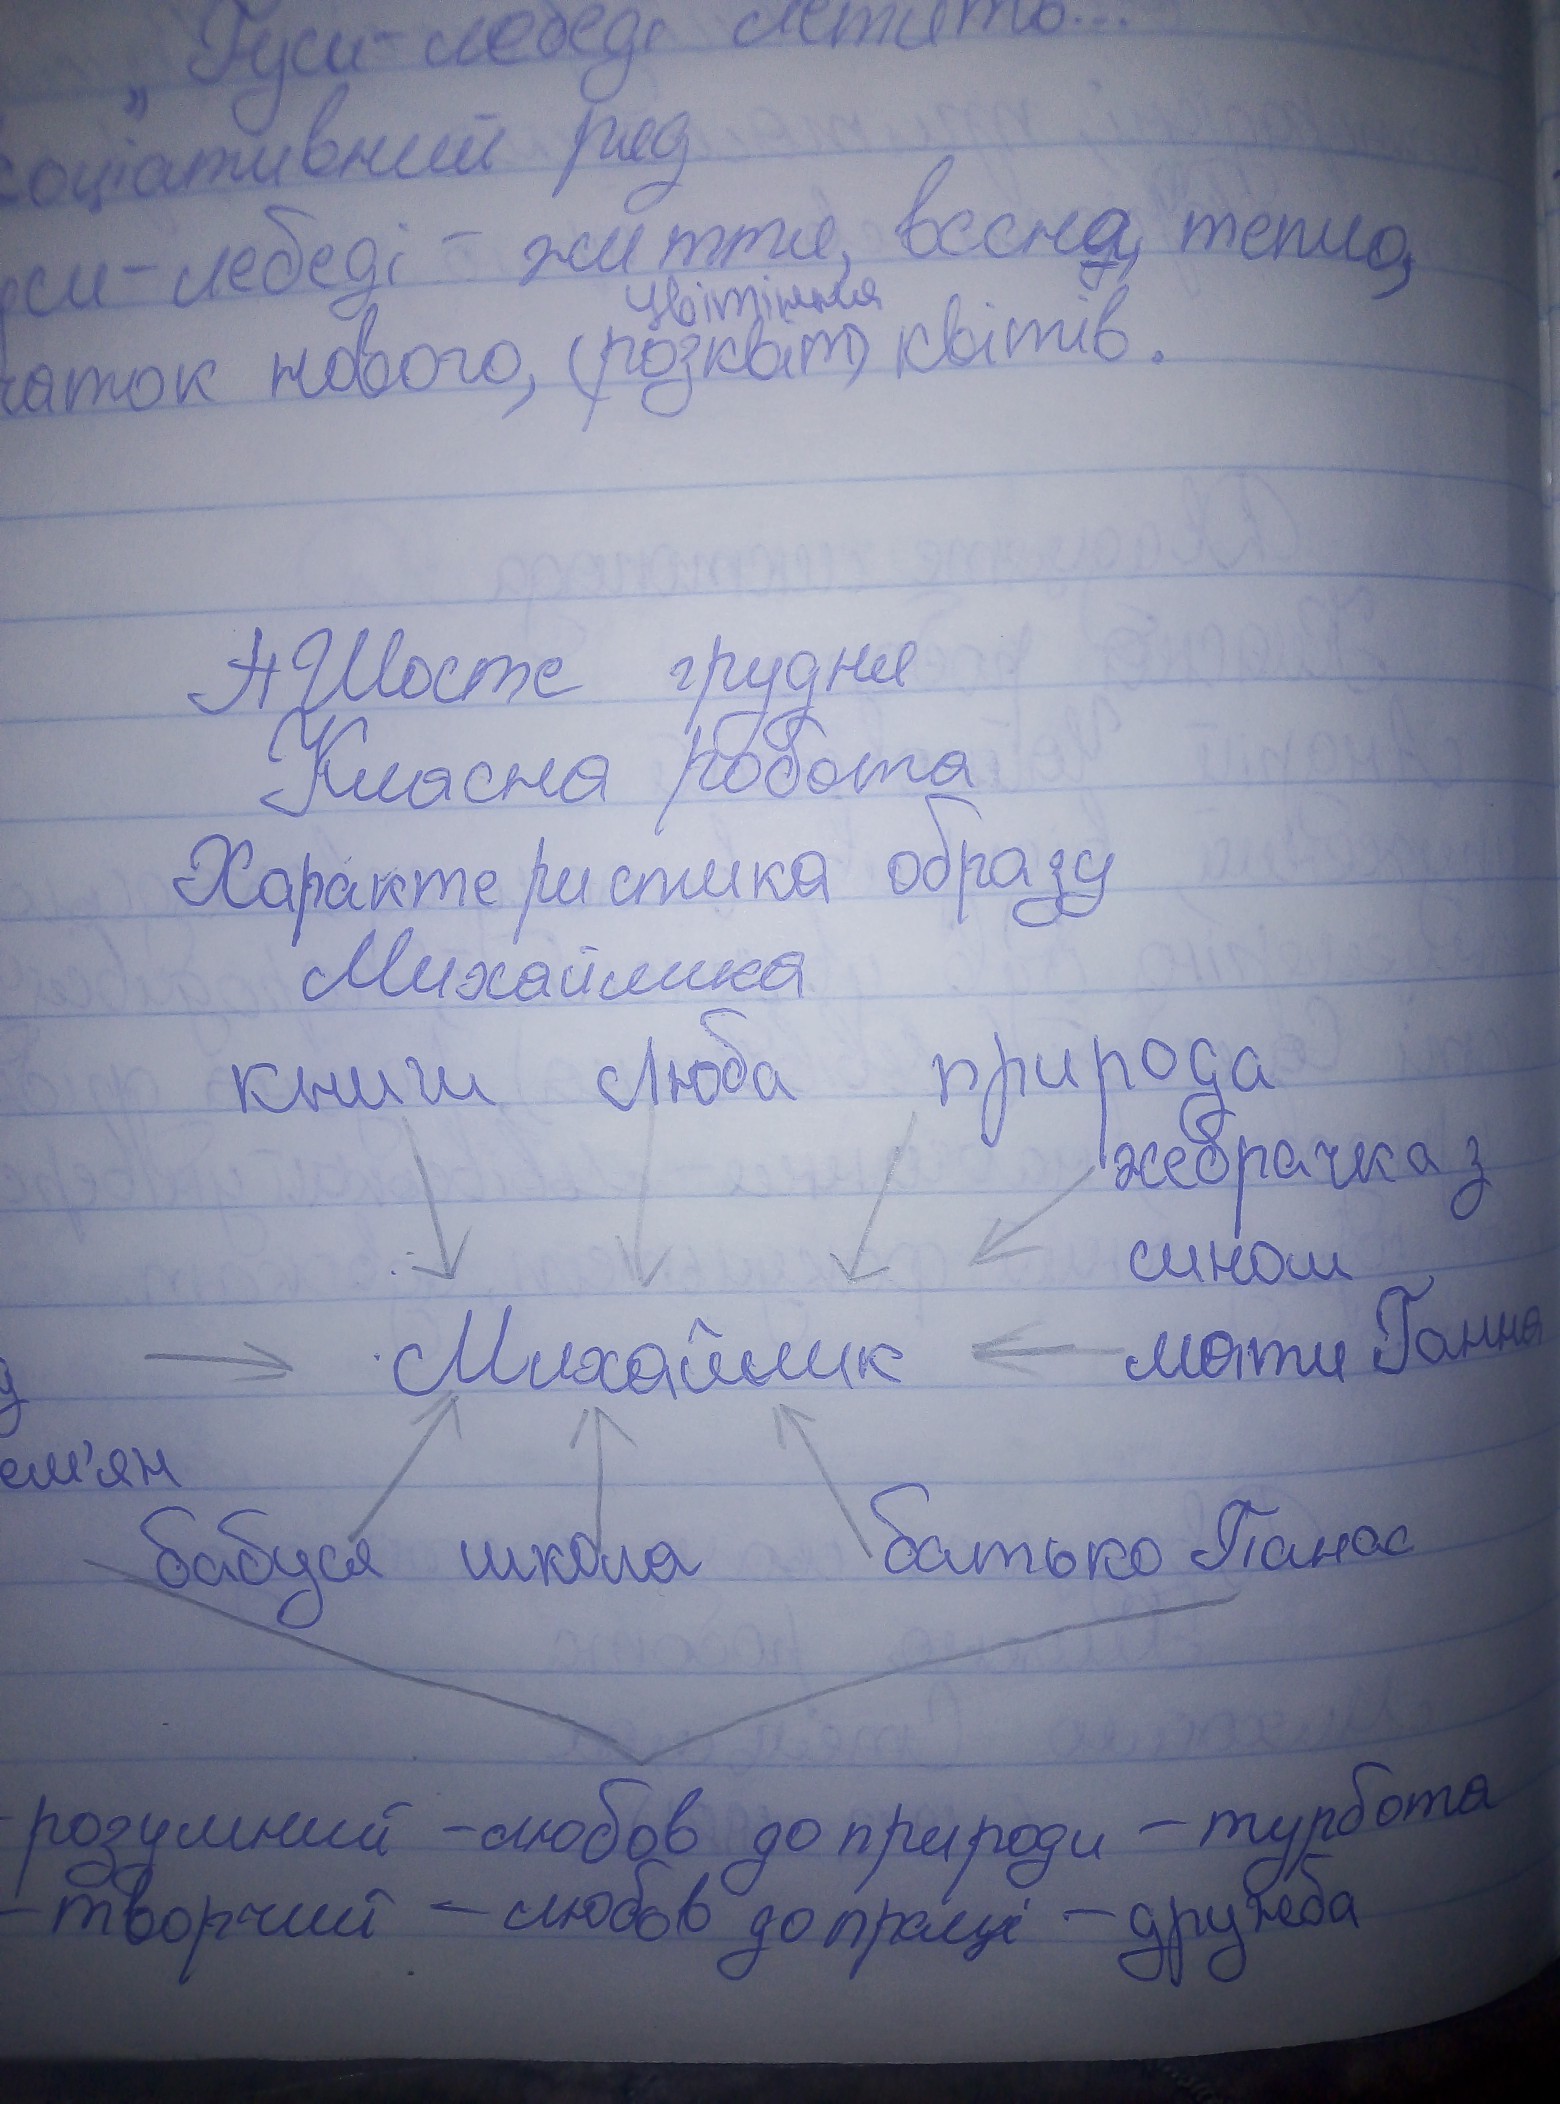 "Гуси-лебеді летять...
"
соціативний ряд
уси-лебеді - життя, весна, тепло,
цвітіння
чаток нового, (розквіт) квітів.
Шосте грудня
Класна робота
Характеристика образу
Михайлика
книги Люба природа
жебрачка з
сином
Михайлик мати Ганна
д
ем'ян
бабуся школа батько Панас
- розумний - любов до природи - турбота
- творчий - любов до праці - дружба